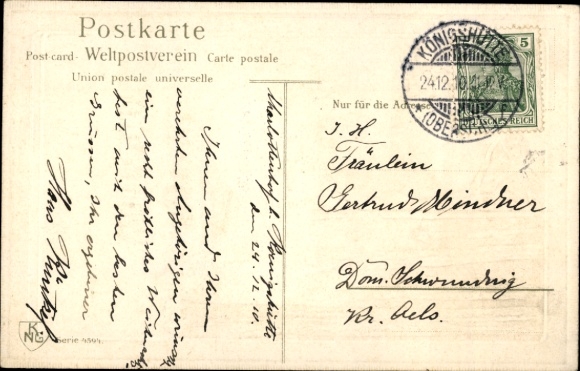 Postkarte
Post-card - Weltpostverein Carte postale
Union postale universelle
KÖNIGSHÜTTE
24.12.10
(OBERSCHL.)
5
DEUTSCHES REICH
Nur für die Adresse
Fräulein
Gertrud Mindner
Dom. Schwundnig
Kr. Oels.
Charlottenhof b. Königshütte
den 24.12.10.
Ihnen und Ihren
verehrten Angehörigen wünscht
ein recht fröhliches Weihnachts
fest mit den besten
Grüssen, Ihr ergebener
Hans
KNG
Serie 4394.